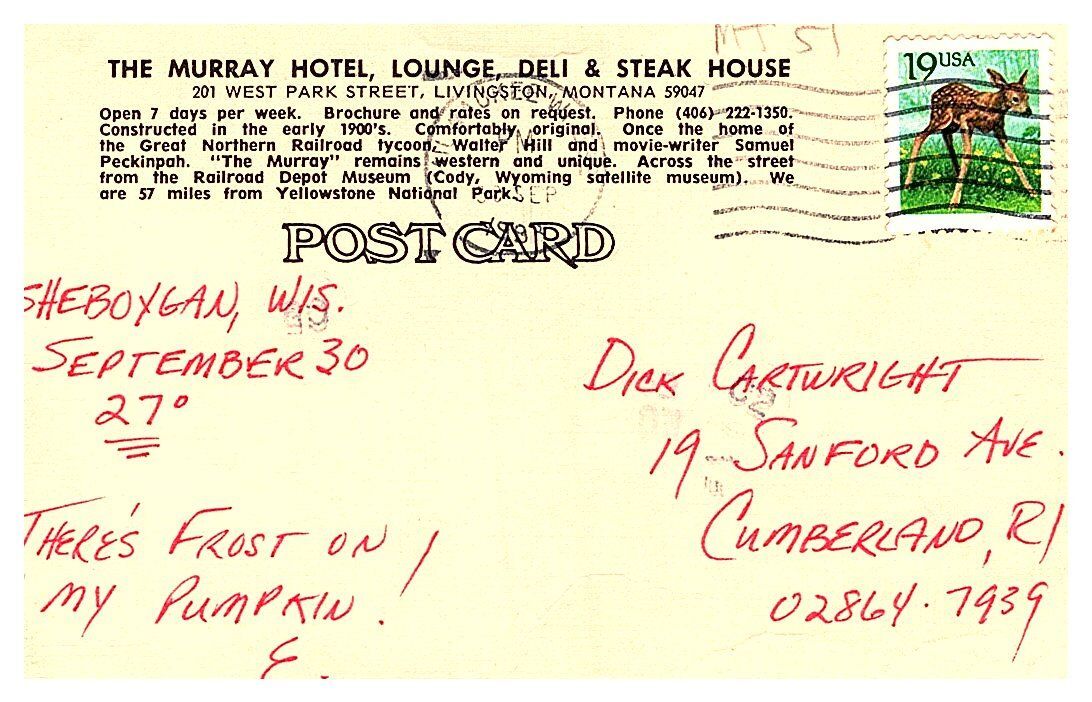 MT 51
THE MURRAY HOTEL, LOUNGE, DELI & STEAK HOUSE
201 WEST PARK STREET, LIVINGSTON, MONTANA 59047
Open 7 days per week. Brochure and rates on request. Phone (406) 222-1350.
Constructed in the early 1900's. Comfortably original. Once the home of
the Great Northern Railroad tycoon, Walter Hill and movie-writer Samuel
Peckinpah. "The Murray" remains western and unique. Across the street
from the Railroad Depot Museum (Cody, Wyoming satellite museum). We
are 57 miles from Yellowstone National Park.
19USA
SEP
POST CARD
SHEBOYGAN, WIS.
SEPTEMBER 30
27°
THERE'S FROST ON
MY PUMPKIN!
E.
DICK CARTWRIGHT
19 SANFORD AVE.
CUMBERLAND, RI
02864.7939